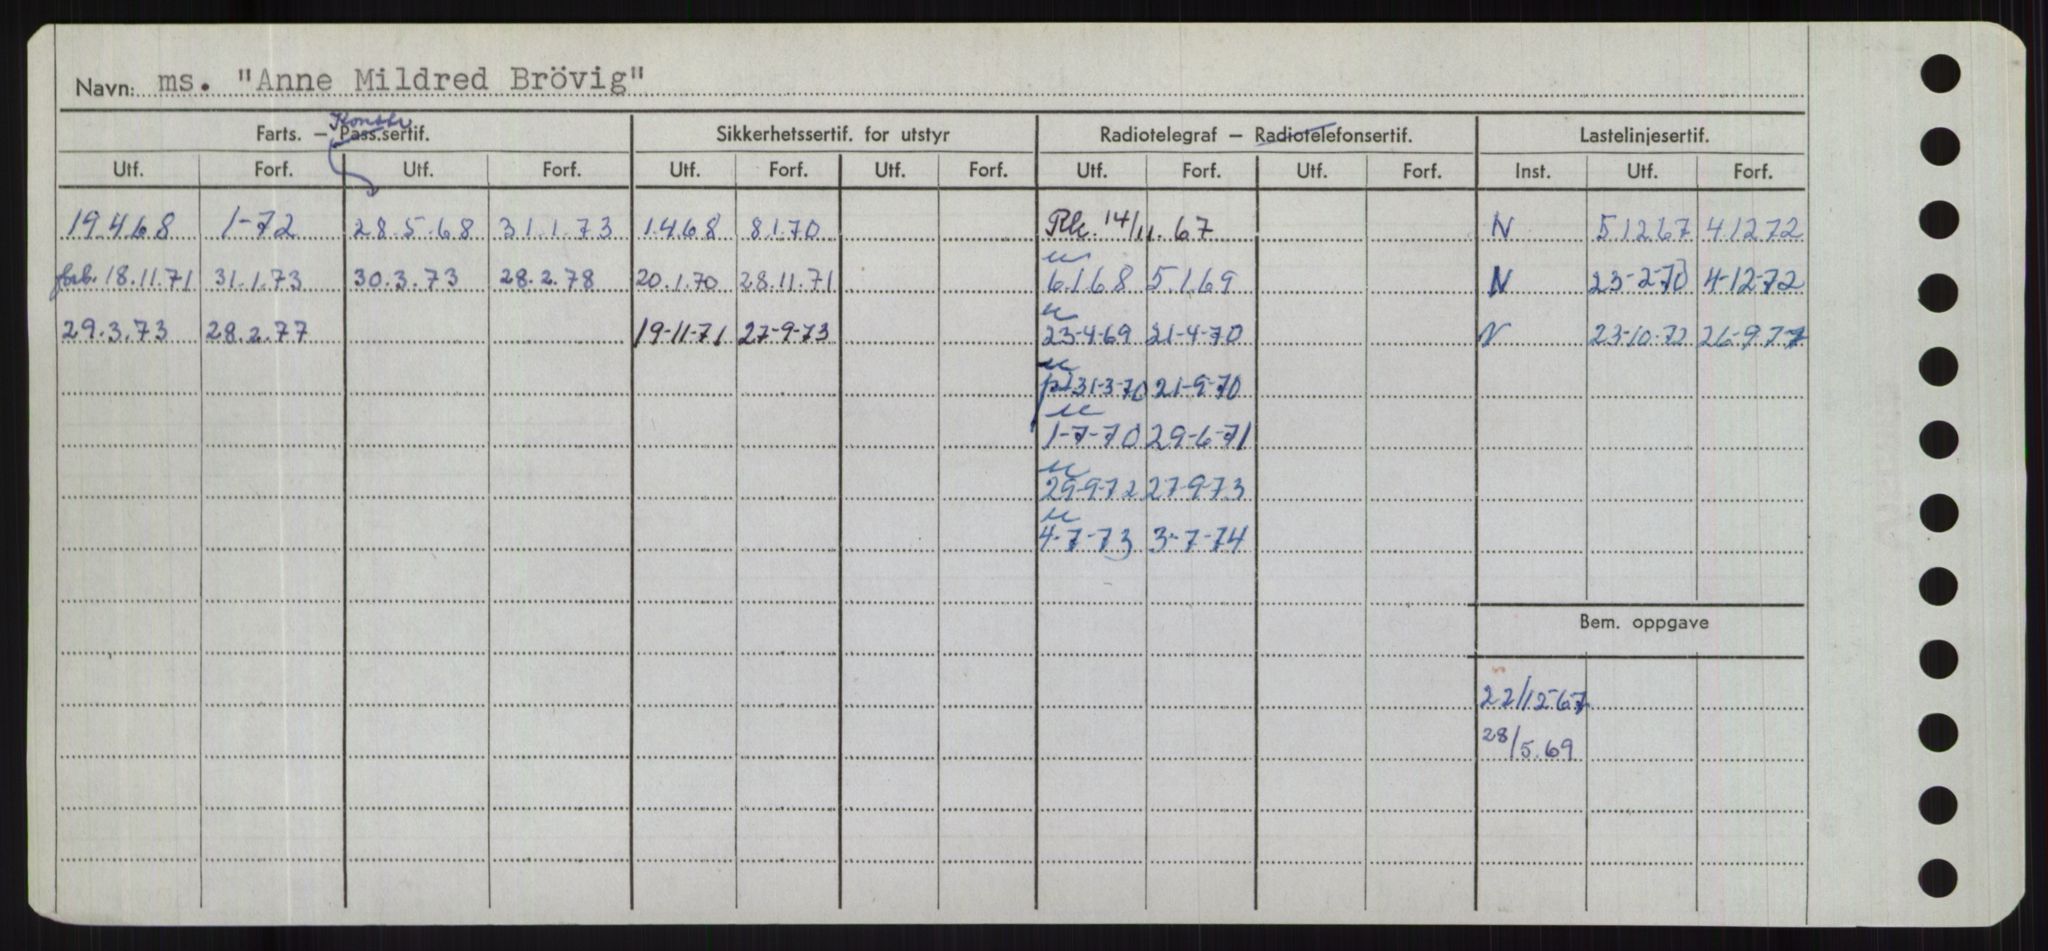 Navn: ms. "Anne Mildred Brövig"
Konstr.
Farts. – Pass.sertif. Sikkerhetssertif. for utstyr Radiotelegraf – Radiotelefonsertif. Lastelinjesertif.
Utf. Forf. Utf. Forf. Utf. Forf. Utf. Forf. Utf. Forf. Utf. Forf. Inst. Utf. Forf.
19.4.68 1-72 28.5.68 31.1.73 1.4.68 8.1.70 14/11.67 N 5.12.67 4.12.72
18.11.71 31.1.73 30.3.73 28.2.78 20.1.70 28.11.71 6.1.68 5.1.69 N 23-2-70 4-12-72
29.3.73 28.2.77 19-11-71 27-9-73 23-4-69 21-4-70 N 23-10-72 26-9-77
31-3-70 21-9-70
1-7-70 29-6-71
29-9-72 27-9-73
4-7-73 3-7-74
Bem. oppgave
22/12-67
28/5.69